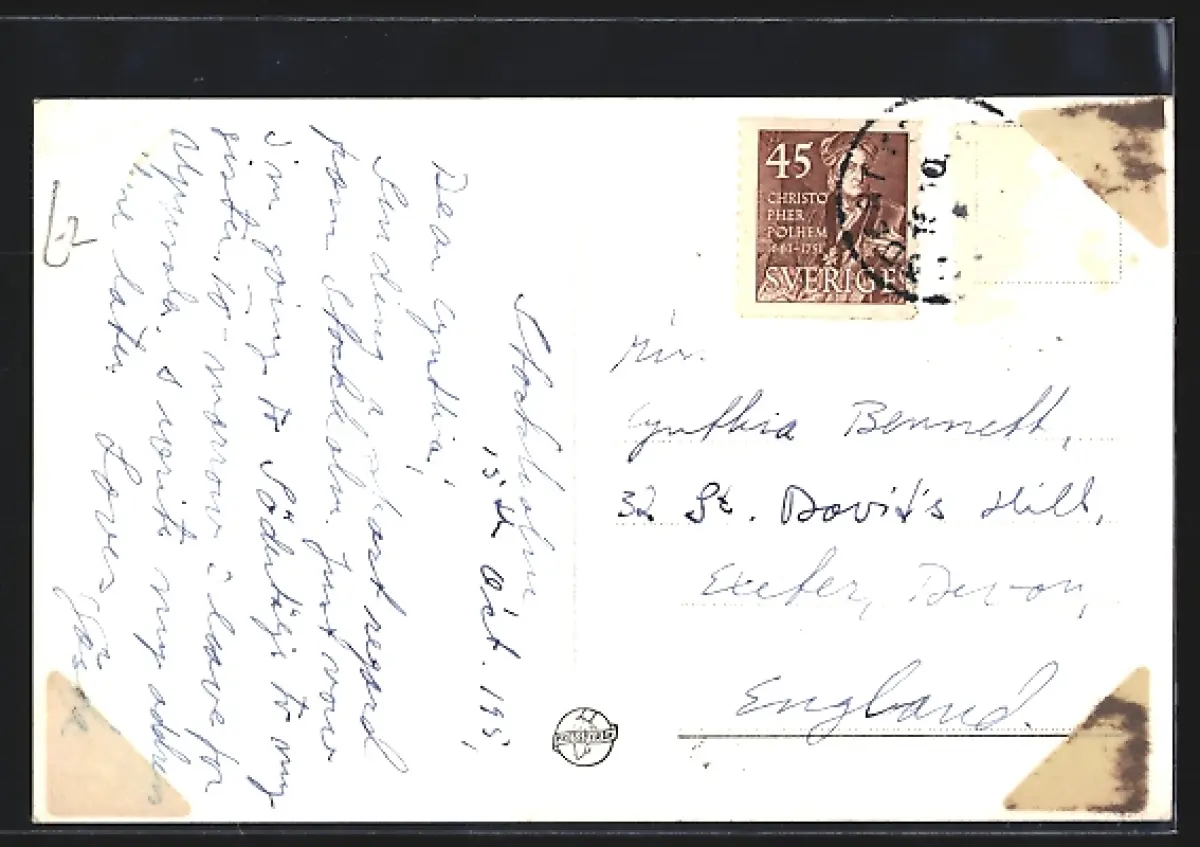 Stockholm
15th Oct. 1951,
Dear Cynthia,
Sending a short regard
from Stockholm. Just now
i'm going to Södertälje to my
sister. To-morrow i leave for
Uppsala. i write my address
later. Love
from
45
CHRISTO
PHER
POLHEM
1661-1751
SVERIGE
Cynthia Bennett,
32 St. David's Hill,
Exeter, Devon,
England.